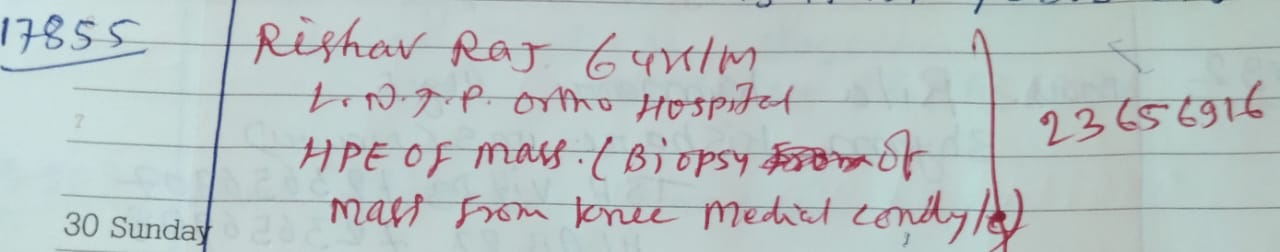 17855
Rishav Raj 6yr/M
L.N.J.P. ortho Hospital
23656916
HPE OF mass. (Biopsy of
mass From knee Medial condyle)
30 Sunday